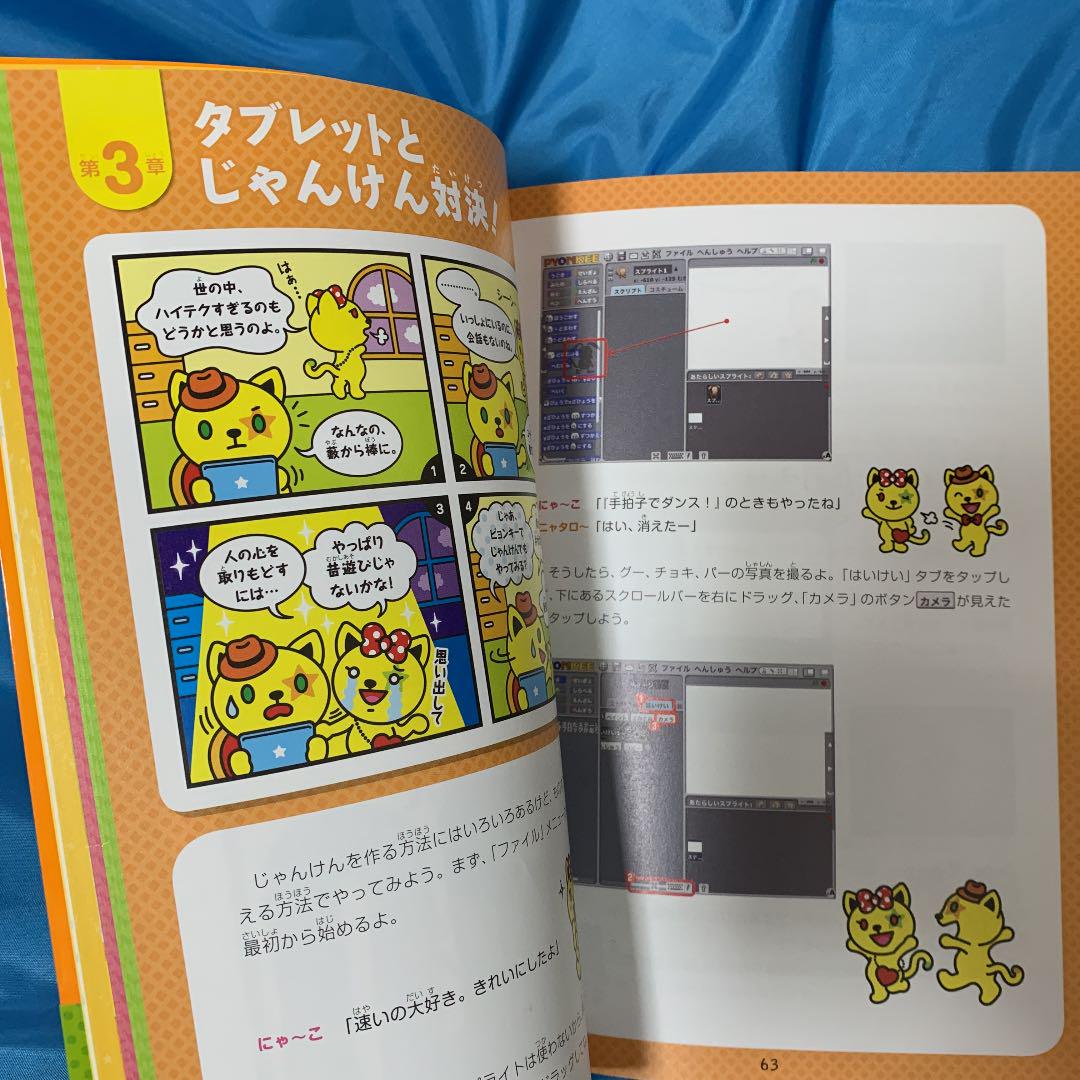 第3章
タブレットと
じゃんけん対決!
世の中、
ハイテクすぎるのも
どうかと思うのよ。
はぁ…
なんなの、
藪から棒に。
1
…………。
シーン
いっしょにいるのに、
会話もないのね。
2
人の心を
取りもどす
には…
やっぱり
昔遊びじゃ
ないかな!
思い出して
3
4
じゃあ、
ピョンキーで
じゃんけんでも
やってみる?
じゃんけんを作る方法にはいろいろあるけど、
える方法でやってみよう。まず、「ファイル」メニュー
最初から始めるよ。
にゃ〜こ 「速いの大好き。きれいにしたよ」
プライトは使わないから、
ドラッグして
PYONKEE ファイル へんしゅう ヘルプ
スプライト1
スクリプト コスチューム
あたらしいスプライト:
にゃ〜こ 「『手拍子でダンス!』のときもやったね」
ニャタロ〜 「はい、消えたー」
そうしたら、グー、チョキ、パーの写真を撮るよ。「はいけい」タブをタップし
、下にあるスクロールバーを右にドラッグ、「カメラ」のボタン カメラ が見えた
タップしよう。
PYONKEE ファイル へんしゅう ヘルプ
1
はいけい
カメラ
3
あたらしいスプライト:
2
63